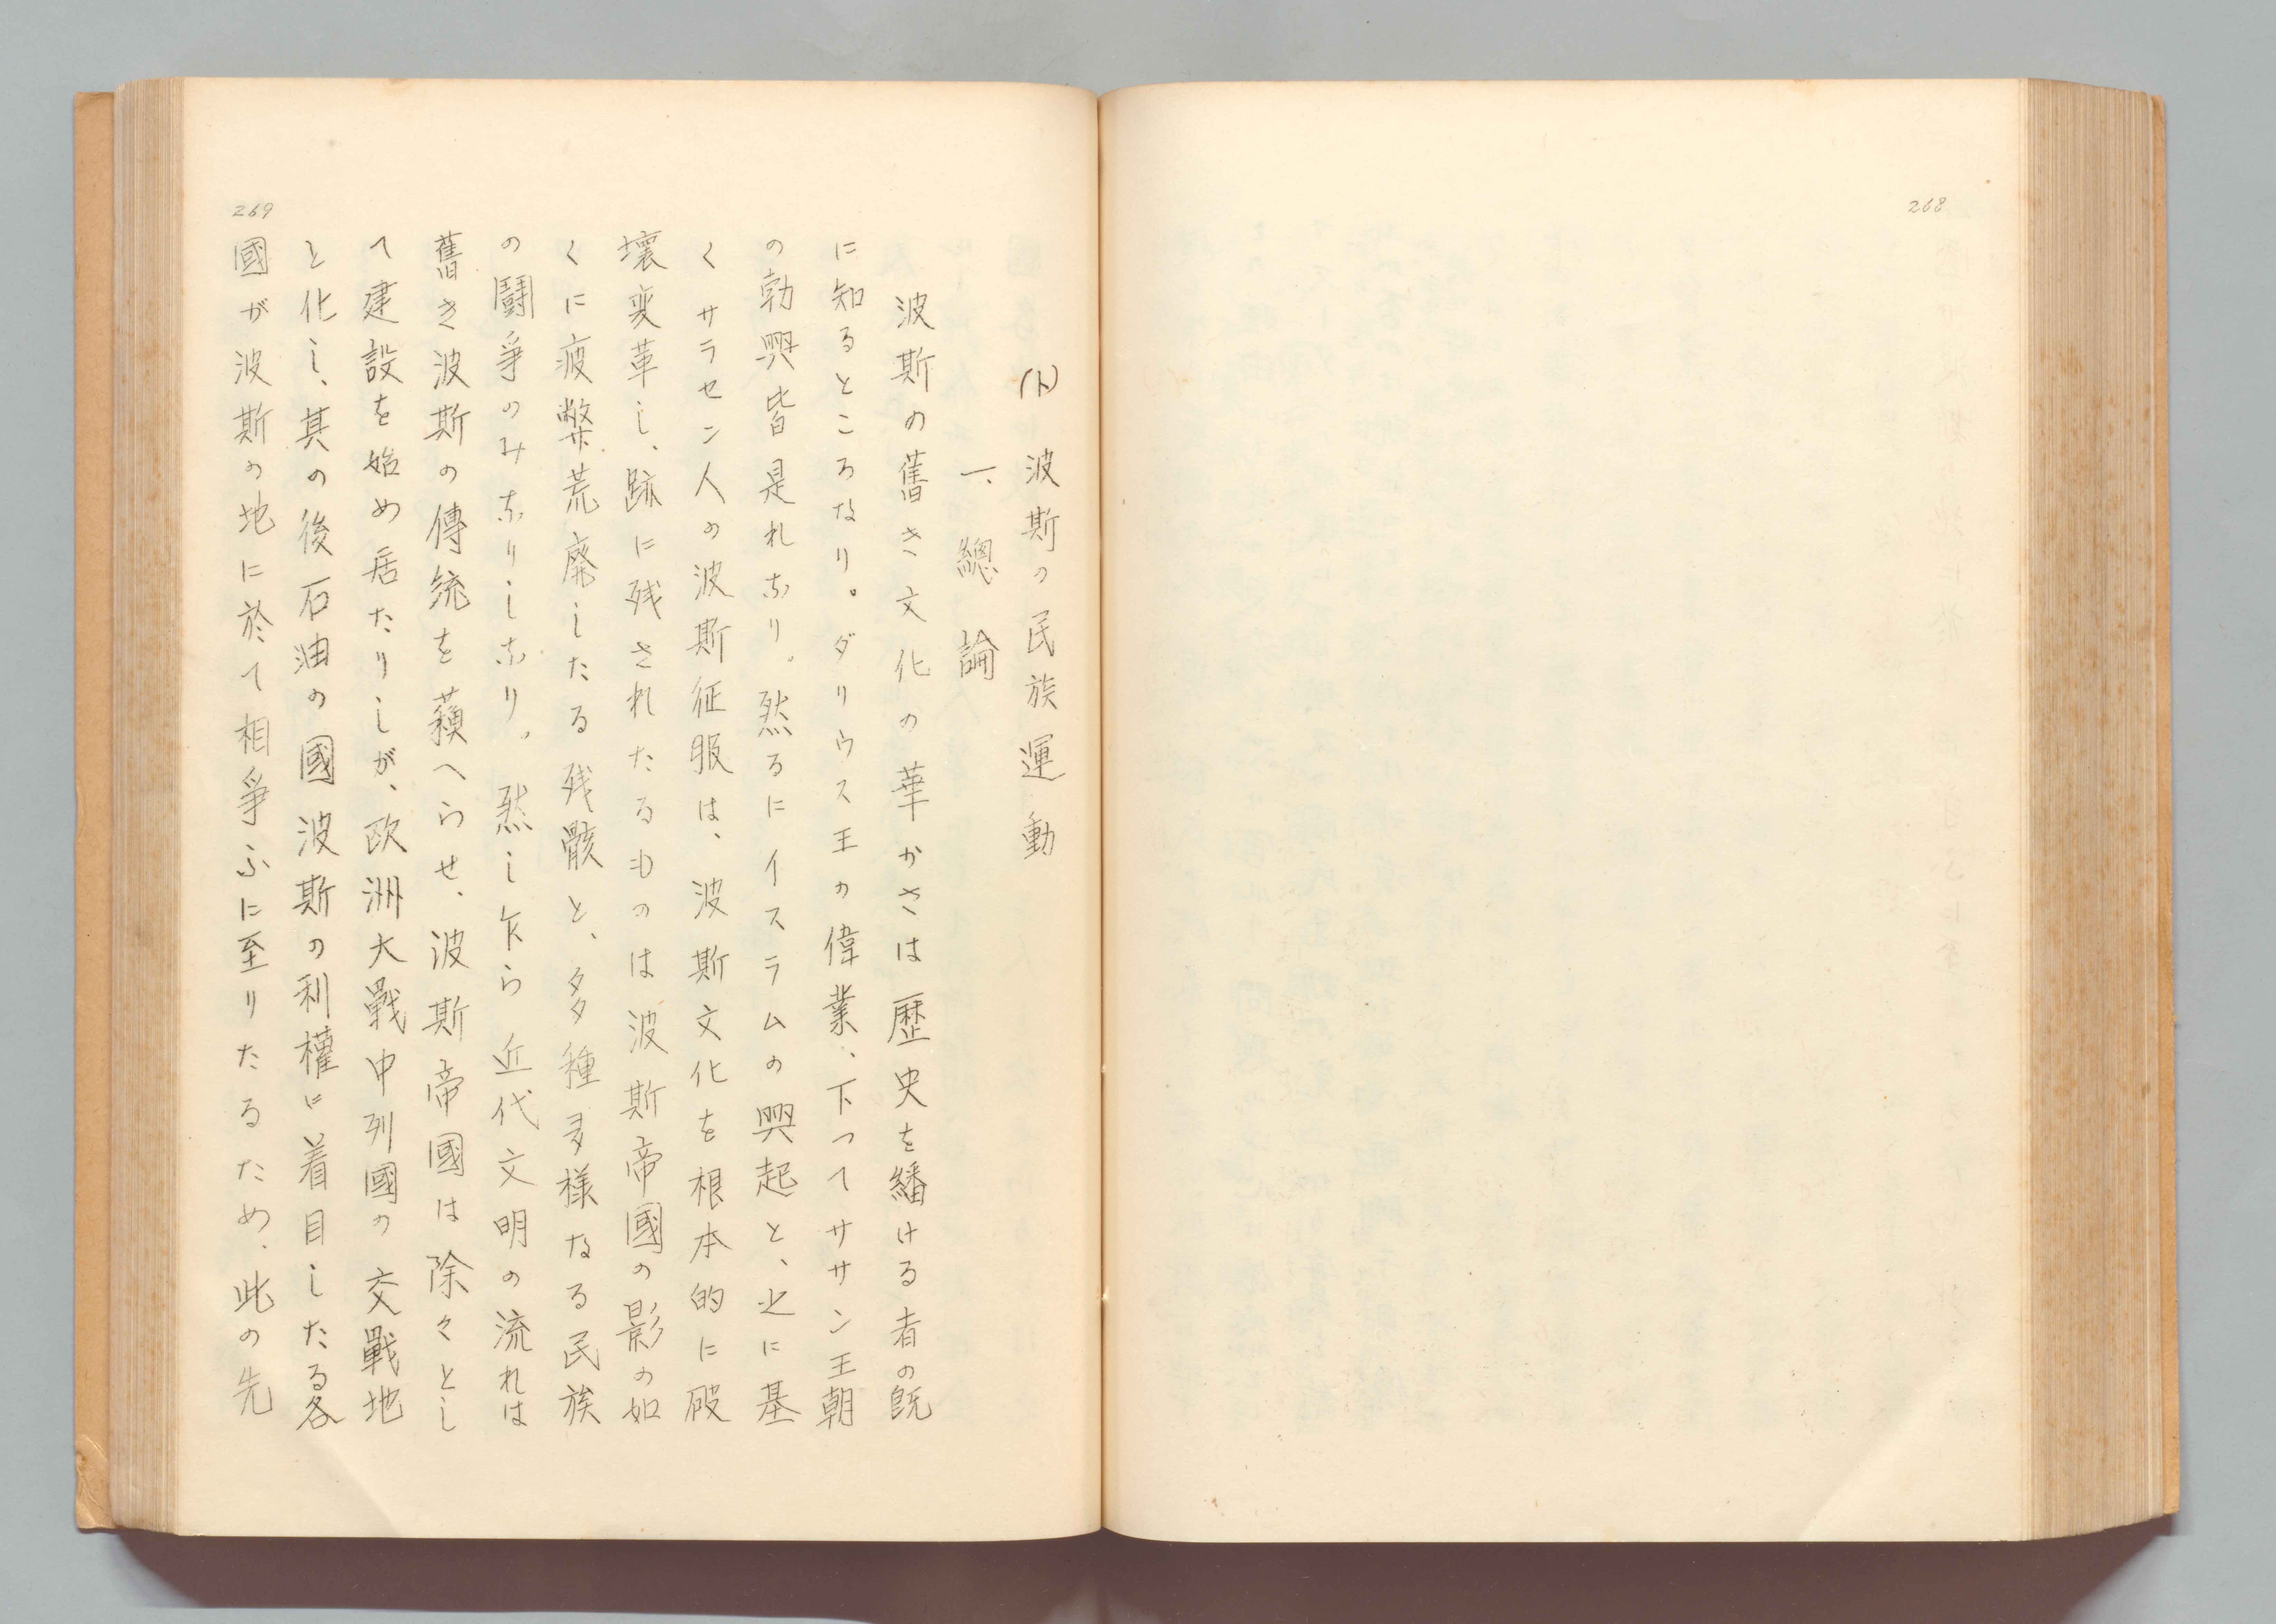 268
(ト) 波斯の民族運動
一、總論
波斯の舊き文化の華かさは歴史を繙ける者の既
に知るところなり。ダリウス王の偉業、下つてササン王朝
の勃興皆是れなり。然るにイスラムの興起と、之に基
くサラセン人の波斯征服は、波斯文化を根本的に破
壞変革し、跡に残されたるものは波斯帝國の影の如
くに疲弊荒廃したる残骸と、多種多様なる民族
の鬪爭のみなりしなり。然し乍ら近代文明の流れは
舊き波斯の傳統を蘓へらせ、波斯帝國は除々とし
て建設を始め居たりしが、欧洲大戰中列國の交戰地
と化し、其の後石油の國波斯の利權に着目したる各
國が波斯の地に於て相爭ふに至りたるため、此の先
269